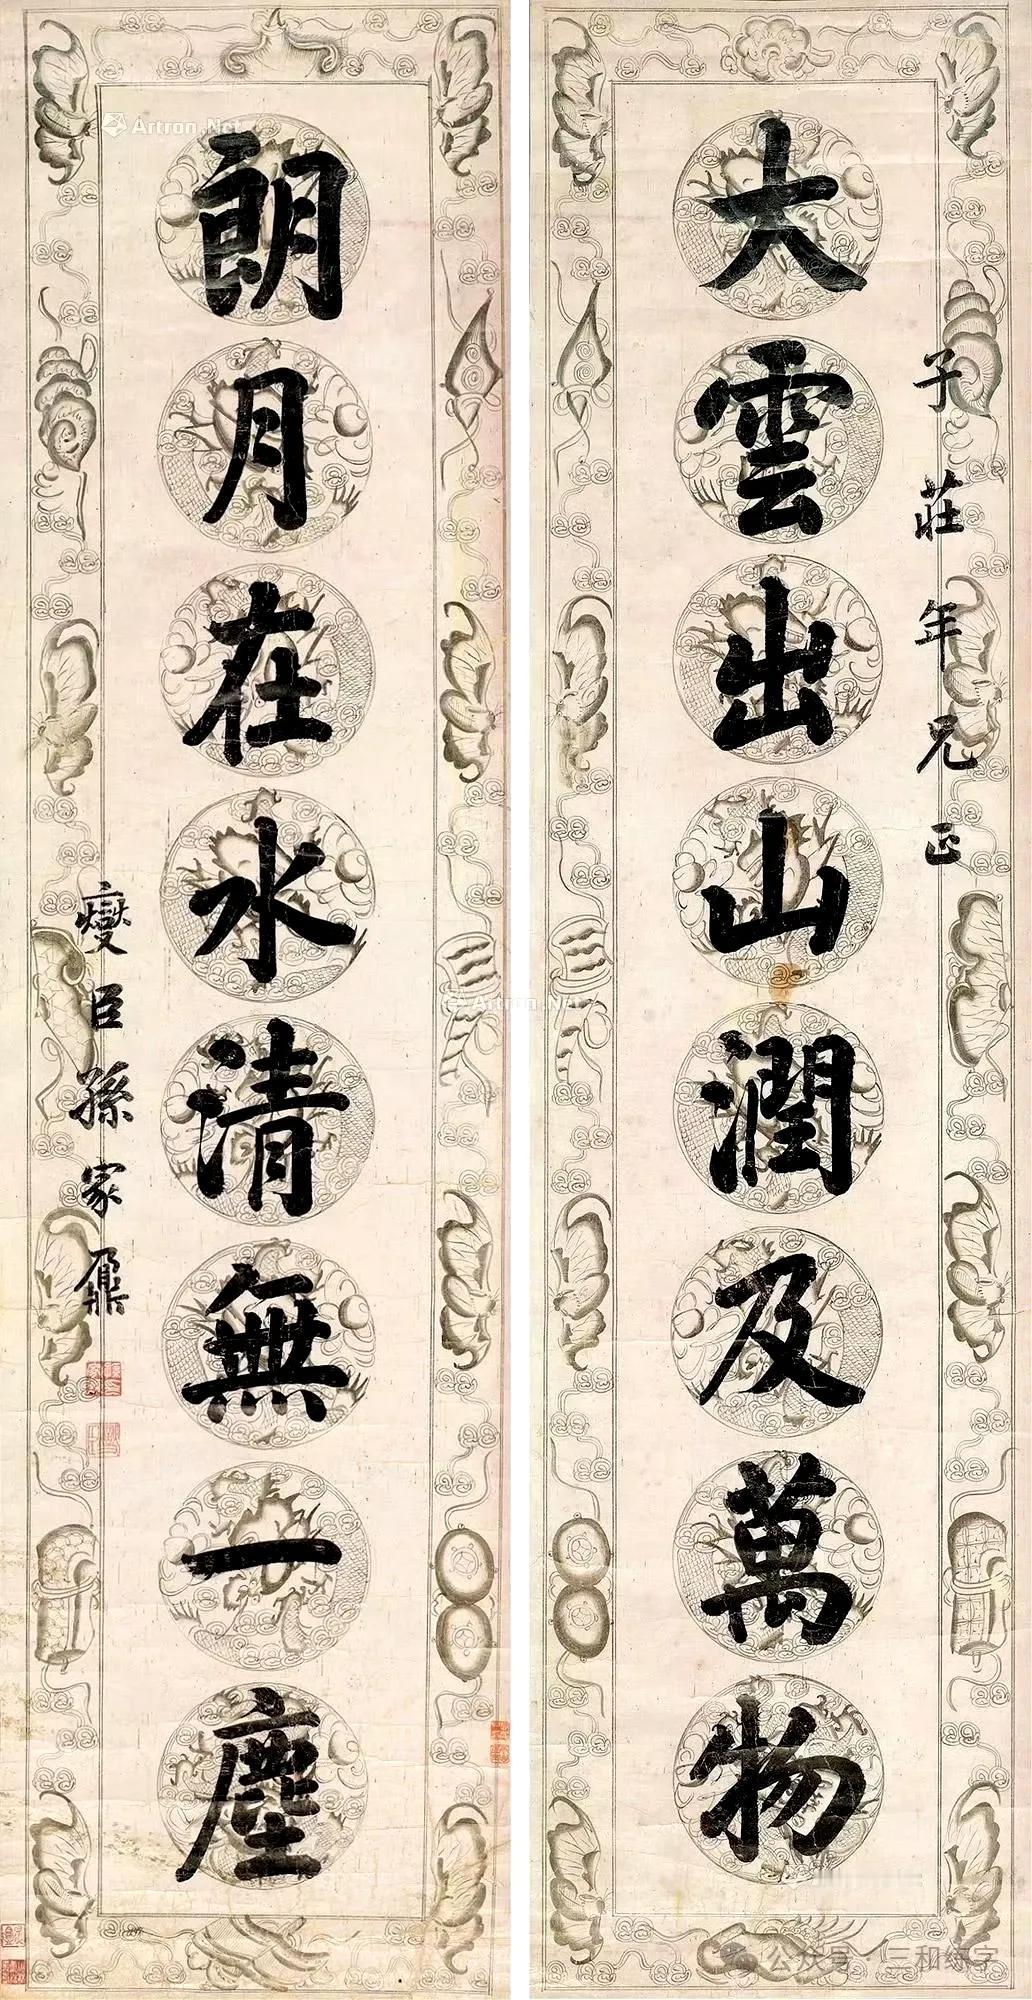 子莊年兄正
大雲出山潤及萬物
朗月在水清無一塵
燮臣孫家鼐
Artron.Net
Artron.Net
公众号·三和练字